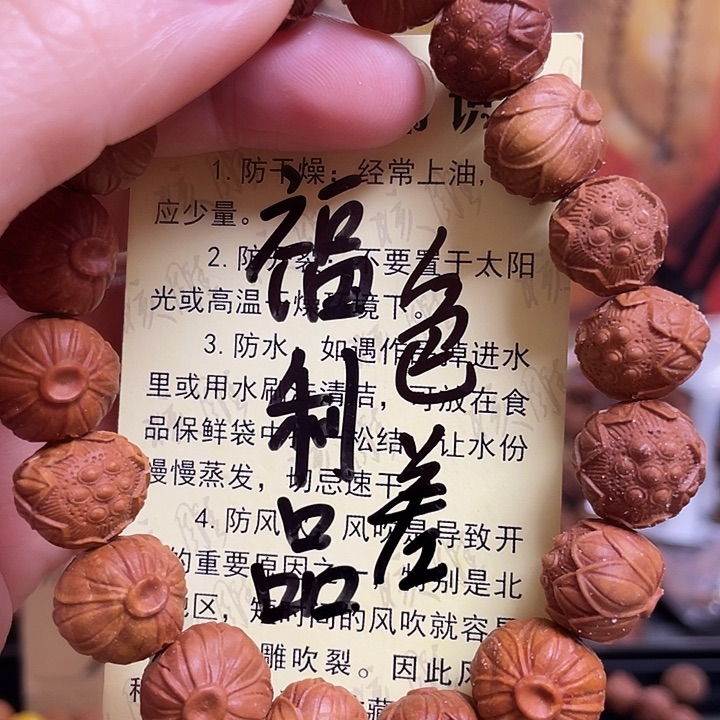 1. 防干燥：经常上油，
应少量。
2. 防 不要置于太阳
光或高温干燥环境下。
3. 防水 如遇作 掉进水
里或用水刷洗清洁，可放在食
品保鲜袋中 松结 让水份
慢慢蒸发，切忌速干
4. 防风 风吹是导致开
的重要原因之一 特别是北
地区，短时间的风吹就容易
雕吹裂。因此风
藏
福利品
色差